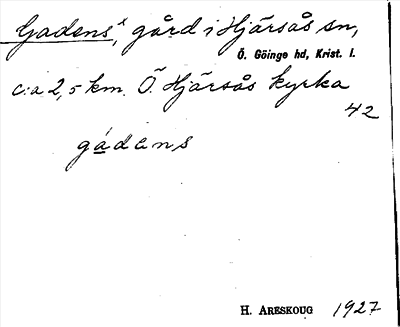 Gadens^x, gård i Hjärsås sn,
Ö. Göinge hd, Krist. l.
c:a 2,5 km. Ö Hjärsås kyrka
42
gádens
H. ARESKOUG 1927